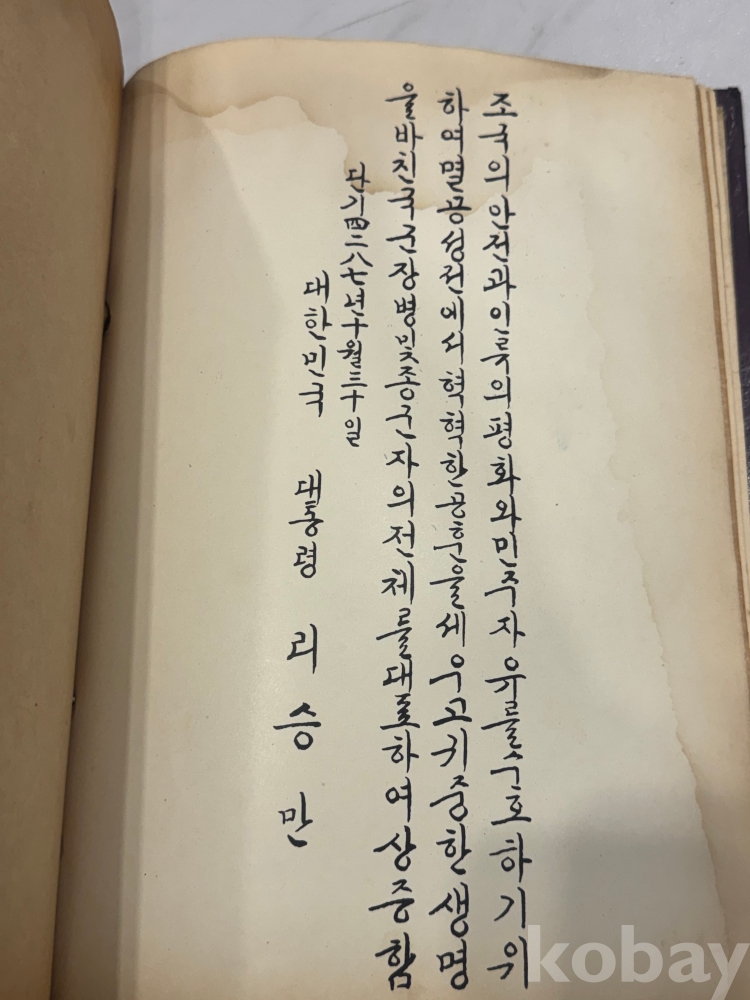 조국의안전과인류의평화와민주자유를수호하기위
하여멸공성전에서혁혁한공훈을세우고귀중한생명
을바친국군장병및종군자의전체를대표하여상중함
단기四二八七년十월三十일
대한민국 대통령 리승만
kobay